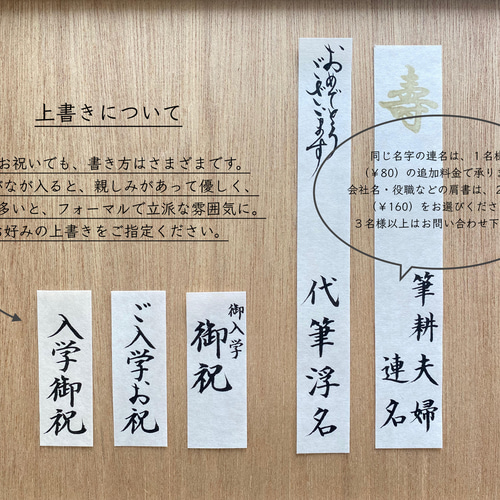 上書きについて
お祝いでも、書き方はさまざまです。
がなが入ると、親しみがあって優しく、
多いと、フォーマルで立派な雰囲気に。
お好みの上書きをご指定ください。
入学御祝
ご入学、お祝
御入学
御祝
おめでとう
ございます
代筆浮名
壽
同じ名字の連名は、１名様
（￥80）の追加料金で承りま
会社名・役職などの肩書は、2
（￥160）をお選びくださ
３名様以上はお問い合わせ下
筆耕夫婦
連名